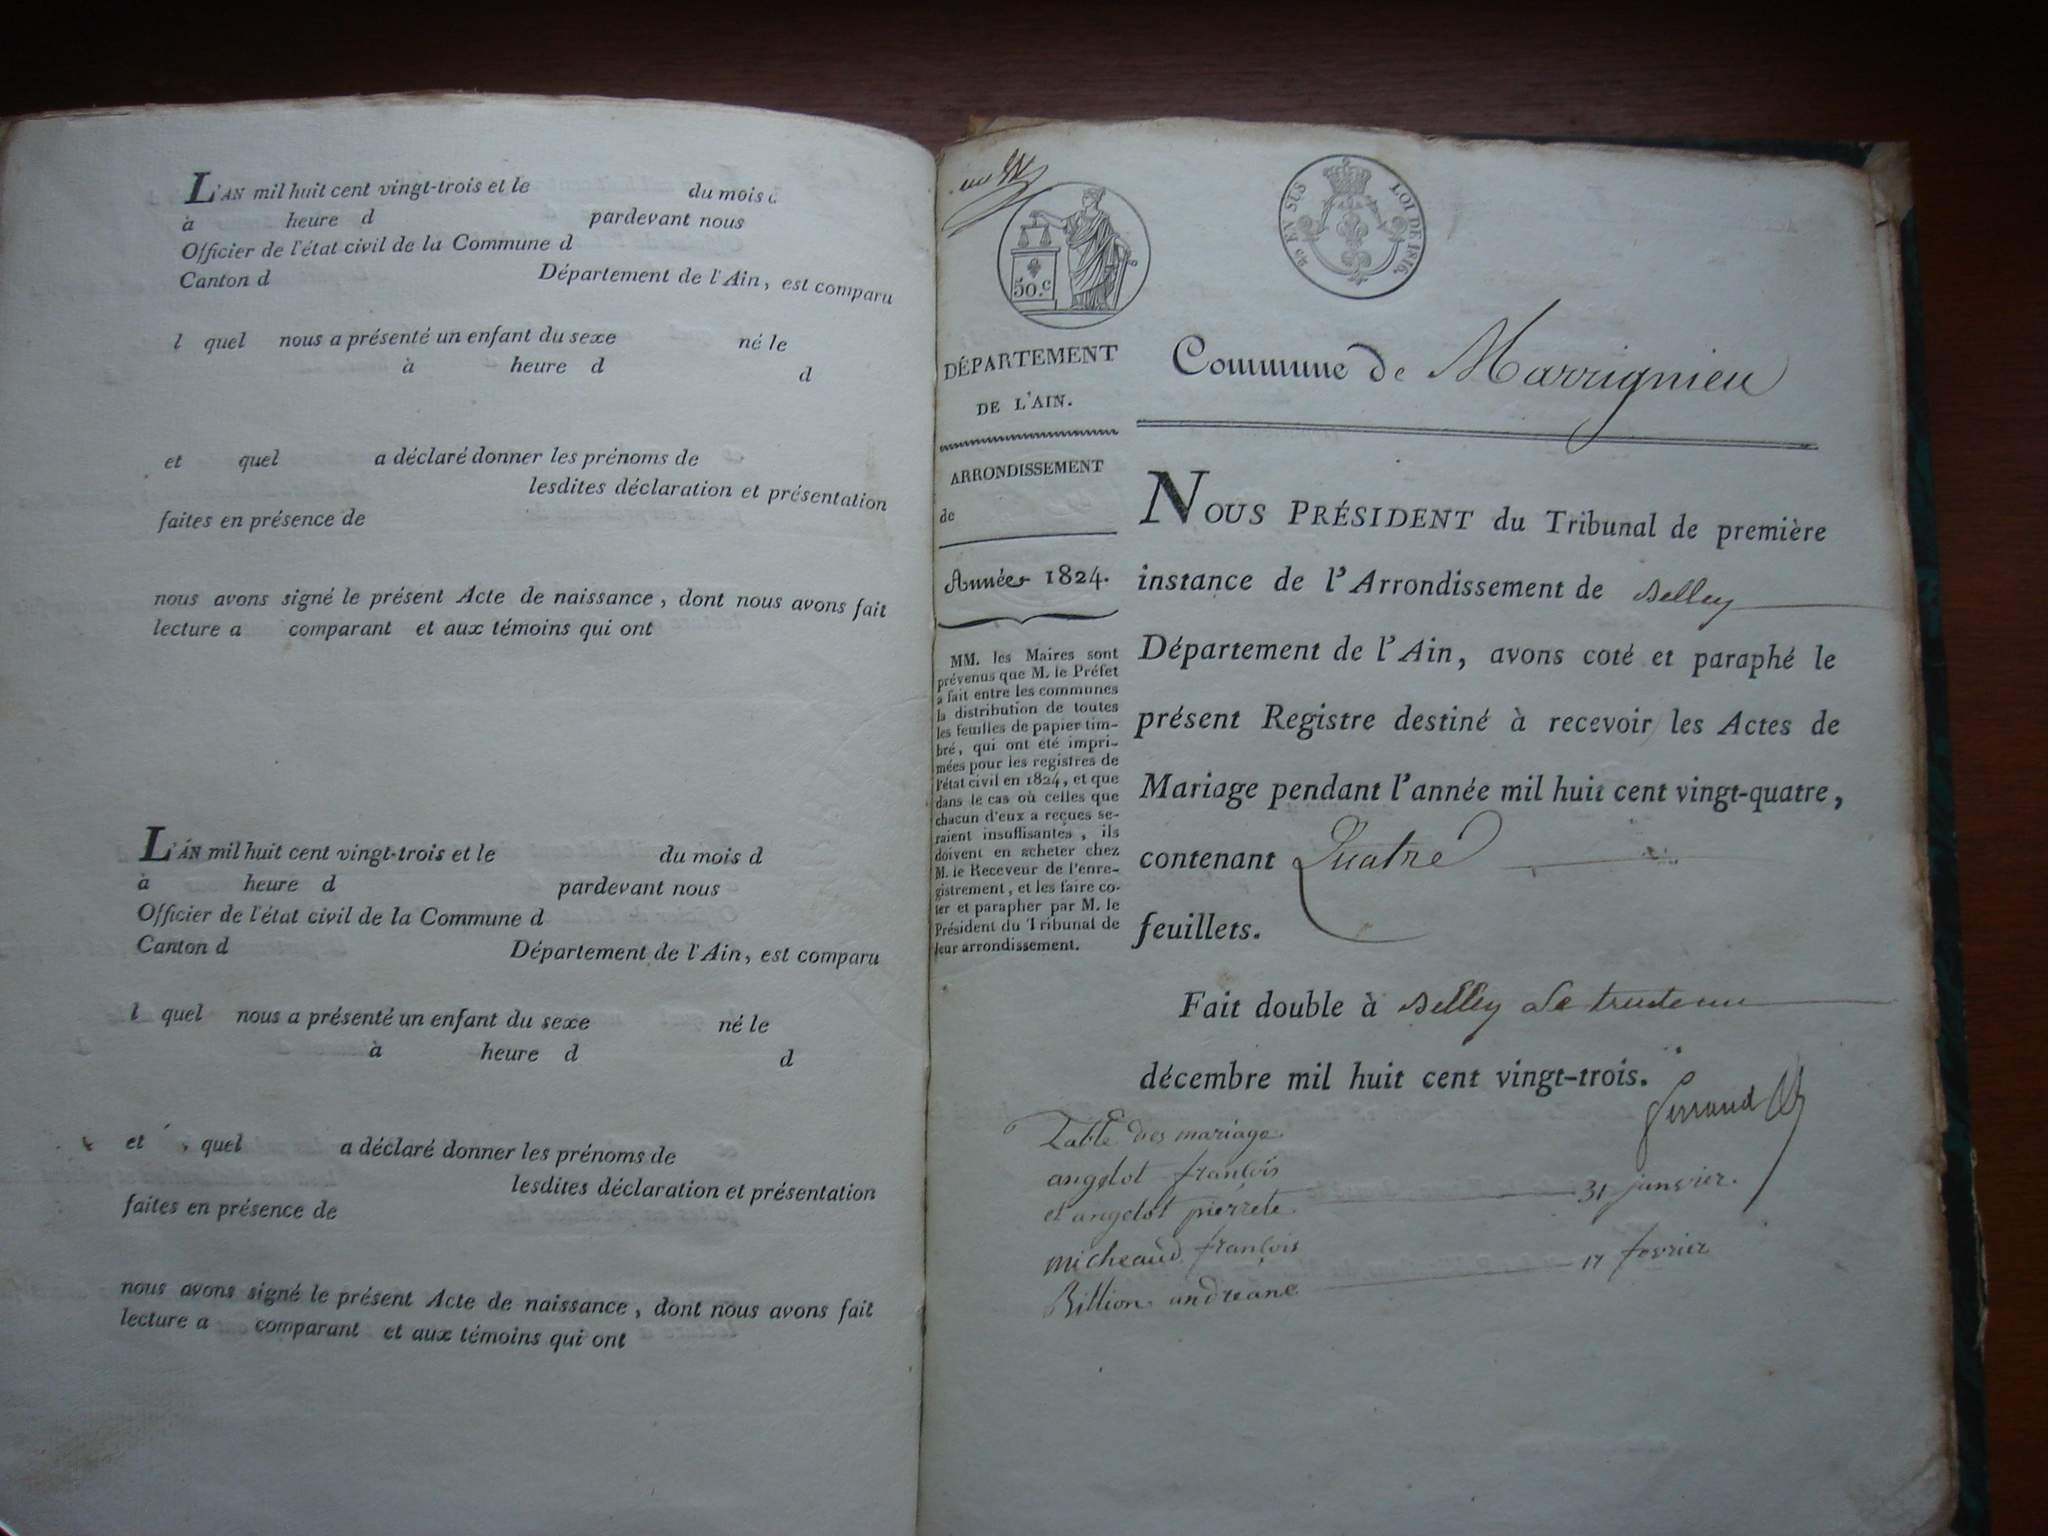 L'AN mil huit cent vingt-trois et le du mois d
à heure d pardevant nous
Officier de l'état civil de la Commune d
Canton d Département de l'Ain, est comparu
l quel nous a présenté un enfant du sexe né le
à heure d d
et quel a déclaré donner les prénoms de
lesdites déclaration et présentation
faites en présence de
nous avons signé le présent Acte de naissance, dont nous avons fait
lecture a comparant et aux témoins qui ont
L'AN mil huit cent vingt-trois et le du mois d
à heure d pardevant nous
Officier de l'état civil de la Commune d
Canton d Département de l'Ain, est comparu
l quel nous a présenté un enfant du sexe né le
à heure d d
et quel a déclaré donner les prénoms de
lesdites déclaration et présentation
faites en présence de
nous avons signé le présent Acte de naissance, dont nous avons fait
lecture a comparant et aux témoins qui ont
50.c
EN SUS LOI DE 1816.
DÉPARTEMENT
DE L'AIN.
ARRONDISSEMENT
de
Année 1824.
MM. les Maires sont
prévenus que M. le Préfet
a fait entre les communes
la distribution de toutes
les feuilles de papier tim-
bré, qui ont été impri-
mées pour les registres de
l'état civil en 1824, et que
dans le cas où celles que
chacun d'eux a reçues se-
raient insuffisantes, ils
doivent en acheter chez
M. le Receveur de l'enre-
gistrement, et les faire co-
ter et parapher par M. le
Président du Tribunal de
leur arrondissement.
Commune de Marrignieu
NOUS PRÉSIDENT du Tribunal de première
instance de l'Arrondissement de Belley
Département de l'Ain, avons coté et paraphé le
présent Registre destiné à recevoir les Actes de
Mariage pendant l'année mil huit cent vingt-quatre,
contenant Quatre
feuillets.
Fait double à Belley Le trente un
décembre mil huit cent vingt-trois.
Table des mariage.
angelot françois
et angelot pierrete 31 janvier.
micheaud françois
Billion andréane 17 fevrier